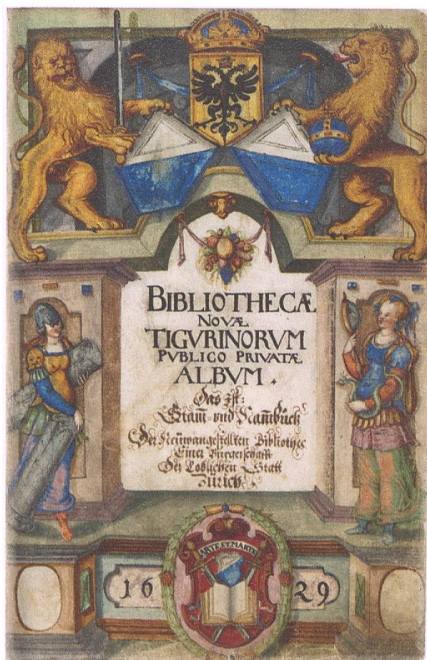 BIBLIOTHECÆ
NOVÆ
TIGVRINORVM
PVBLICO PRIVATÆ
ALBVM.
Das Ist:
Stam̄ und Nam̄büch
Der Neüwangestellten Bibliothec
Einer Burgerschafft
Der Loblichen Statt
Zürich.
ARTE ET MARTE
16 29